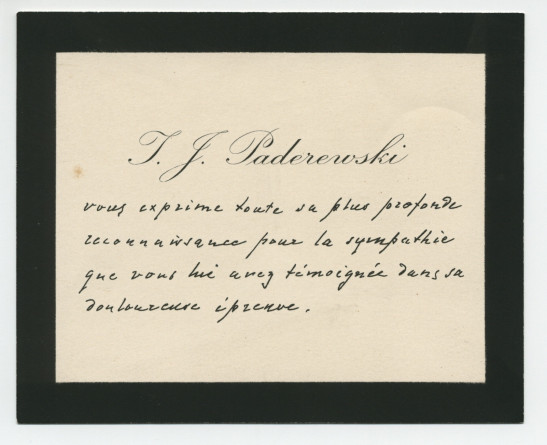 I. J. Paderewski
vous exprime toute sa plus profonde
reconnaissance pour la sympathie
que vous lui avez témoignée dans sa
douloureuse épreuve.